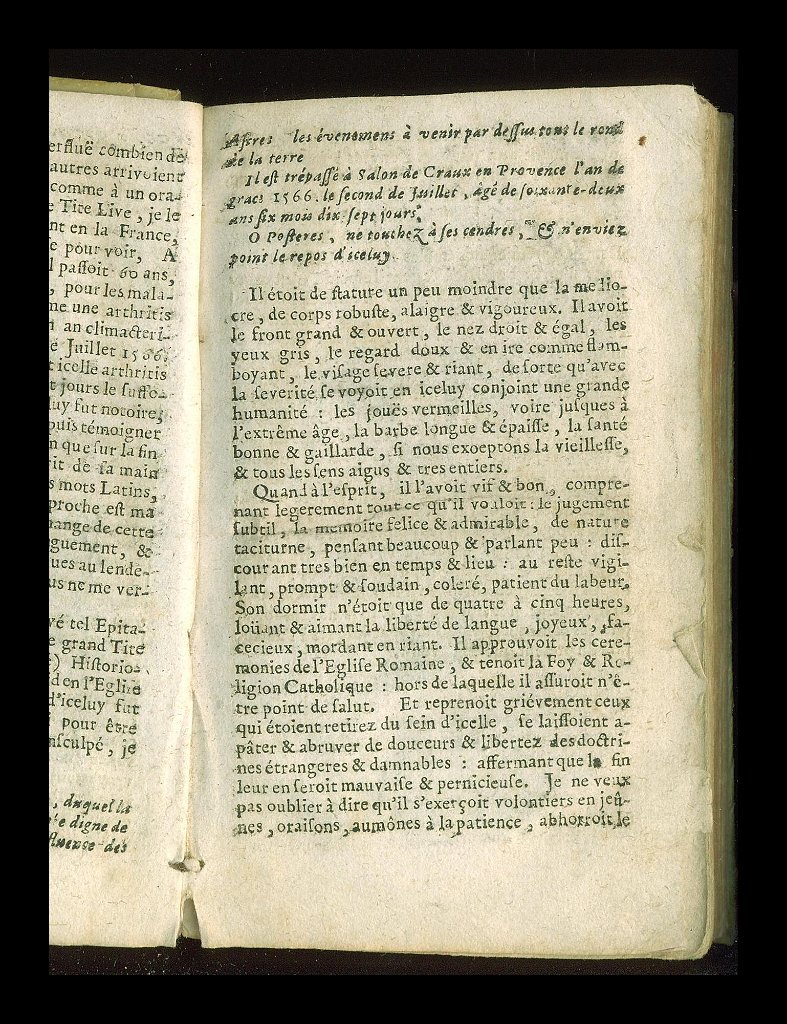 erfluë combien de
autres arrivoient
comme à un ora-
e Tite Live, je le
nt en la France,
e pour voir, A
l passoit 60 ans,
, pour les mala-
ne une arthritis
n an climacteri-
e Juillet 1566.
t icelle arthritis
t jours le suffo-
uy fut notoire,
puis témoigner
n que sur la fin
rit de sa main
s mots Latins,
proche est ma
hange de cette
guement, &
ues au lende-
us ne me ver-
vé tel Epita-
e grand Tite
) Historio-
d en l'Eglise
d'iceluy fut
pour être
nsculpé, je
, duquel la
te digne de
fluence des
Astres les évenemens à venir par dessus tous le rond
de la terre
Il est trépassé à Salon de Craux en Provence l'an de
grace 1566. le second de Juillet, âgé de soixante-deux
ans six mois dix-sept jours.
O Posteres, ne touchez à ses cendres, & n'enviez
point le repos d'iceluy.
Il étoit de stature un peu moindre que la medio-
cre, de corps robuste, alaigre & vigoureux. Il avoit
le front grand & ouvert, le nez droit & égal, les
yeux gris, le regard doux & en ire comme flam-
boyant, le visage severe & riant, de sorte qu'avec
la severité se voyoit en iceluy conjoint une grande
humanité : les jouës vermeilles, voire jusques à
l'extrême âge, la barbe longue & épaisse, la santé
bonne & gaillarde, si nous exoeptons la vieillesse,
& tous les sens aigus & tres entiers.
Quand à l'esprit, il l'avoit vif & bon, compre-
nant legerement tout ce qu'il vouloit : le jugement
subtil, la memoire felice & admirable, de nature
taciturne, pensant beaucoup & parlant peu : dis-
courant tres bien en temps & lieu : au reste vigi-
lant, prompt & soudain, coleré, patient du labeur.
Son dormir n'étoit que de quatre à cinq heures,
loüant & aimant la liberté de langue, joyeux, fa-
cecieux, mordant en riant. Il approuvoit les cere-
monies de l'Eglise Romaine, & tenoit la Foy & Re-
ligion Catholique : hors de laquelle il assuroit n'ê-
tre point de salut. Et reprenoit griévement ceux
qui étoient retirez du sein d'icelle, se laissoient a-
pâter & abruver de douceurs & libertez des doctri-
nes étrangeres & damnables : affermant que la fin
leur en seroit mauvaise & pernicieuse. Je ne veux
pas oublier à dire qu'il s'exerçoit volontiers en jeû-
nes, oraisons, aumônes à la patience, abhorroit le